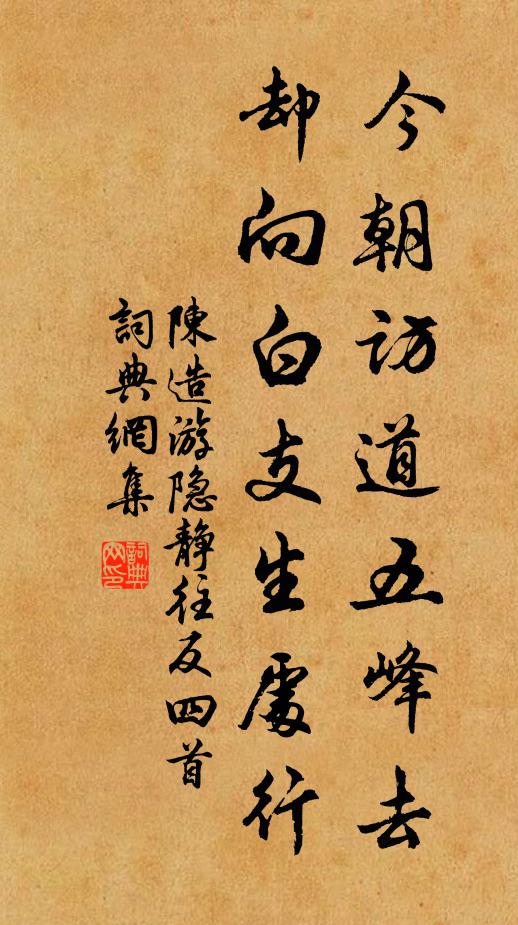 今朝訪道五峰去
却向白支生處行
陳造游隐静往反四首
詞典網集
詞典网印